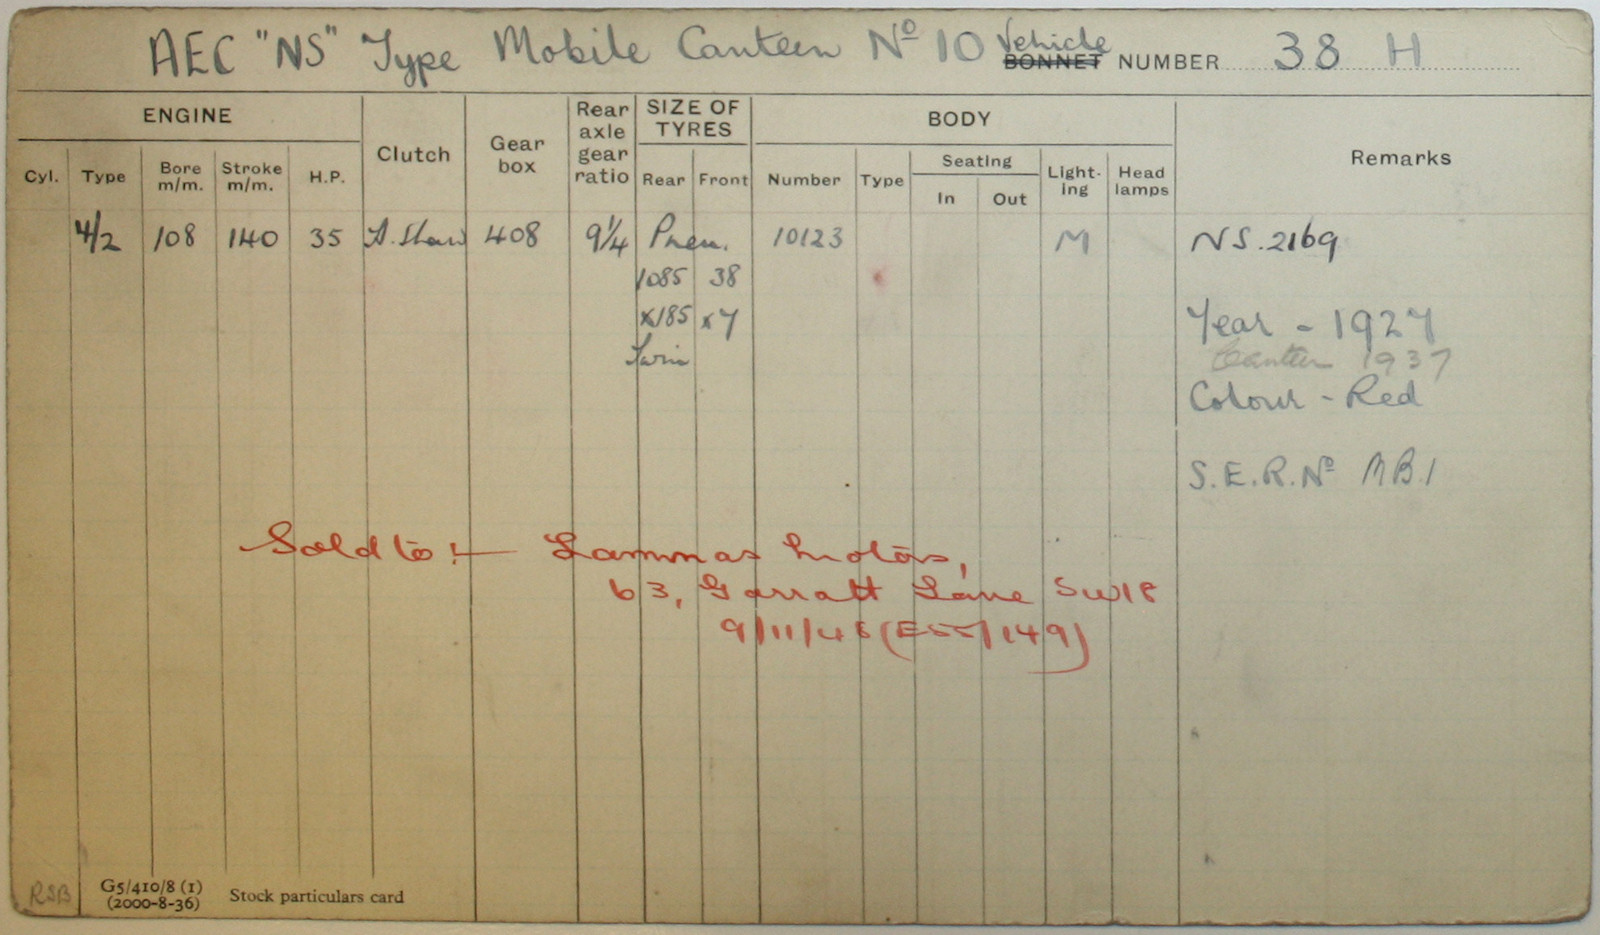 AEC "NS" Type Mobile Canteen Nº 10 Vehicle BONNET NUMBER 38 H
ENGINE Clutch Gear box Rear axle gear ratio SIZE OF TYRES BODY Remarks
Cyl. Type Bore m/m. Stroke m/m. H.P. Rear Front Number Type Seating In Out Light-ing Head lamps
4/2 108 140 35 A. Shaw 408 9¼ Pneu. 10123 M NS. 2169
1085 38
x185 x7 Year - 1927
Twin Canteen 1937
Colour - Red
S.E.R. Nº MB.1
Sold to :- Lammas Motors,
63, Garratt Lane SW18
9/11/46 (E55/149)
RSB G5/410/8 (1) Stock particulars card
(2000-8-36)